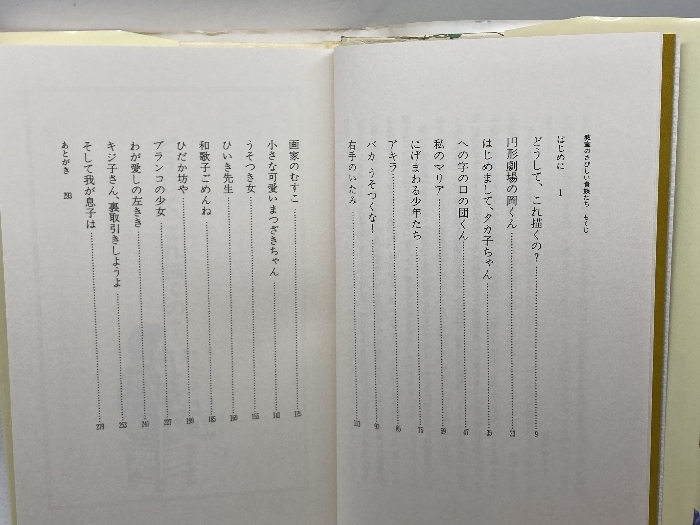 教室のさびしい貴族たち もくじ
はじめに 1
どうして、これ描くの？ 9
円形劇場の岡くん 21
はじめまして、タカ子ちゃん 35
への字の口の団くん 47
私のマリア 59
にげまわる少年たち 75
アキラ 85
バカ うそつくな！ 93
右手のいたみ 113
画家のむすこ 125
小さな可愛いまつざきちゃん 141
うそつき女 155
ひいき先生 169
和歌子ごめんね 185
ひだか坊や 199
ブランコの少女 227
わが愛しの左きき 241
キジ子さん、裏取引きしようよ 253
そして我が息子は 279
あとがき 293